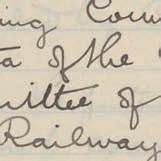 ing Com
ta of the
mittee of
Railway